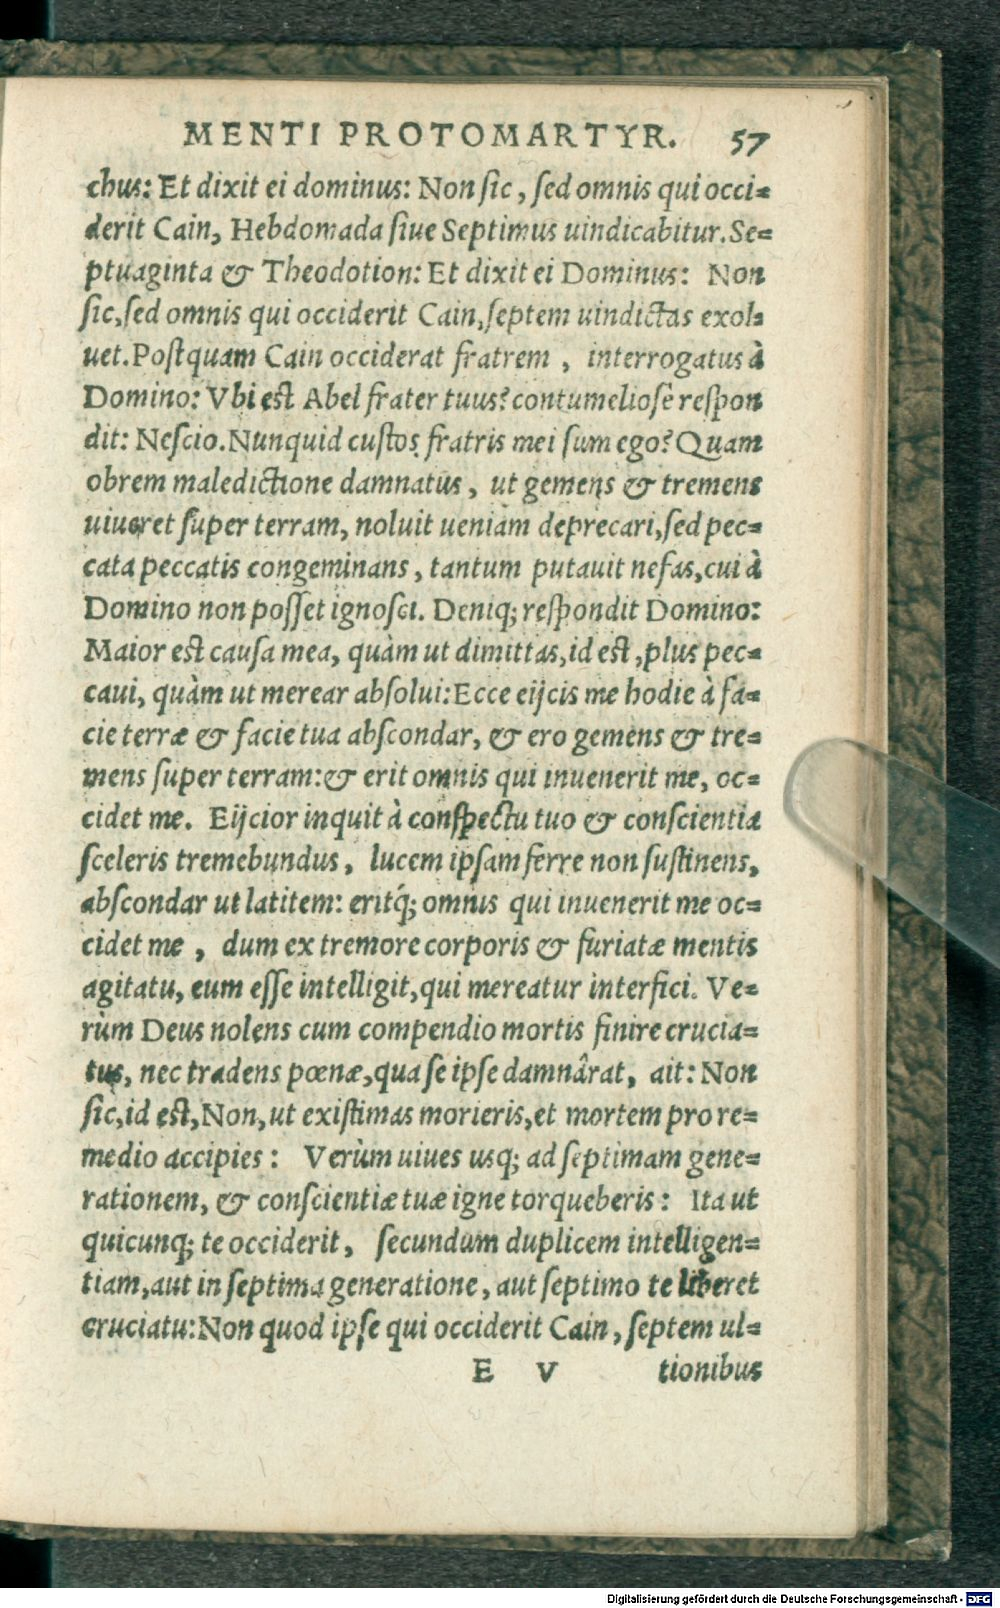 MENTI PROTOMARTYR. 57
chus: Et dixit ei dominus: Non sic, sed omnis qui occi=
derit Cain, Hebdomada siue Septimus uindicabitur. Se=
ptuaginta & Theodotion: Et dixit ei Dominus: Non
sic, sed omnis qui occiderit Cain, septem uindictas exol=
uet. Postquam Cain occiderat fratrem, interrogatus à
Domino: Vbi est Abel frater tuus? contumeliosè respon
dit: Nescio. Nunquid custos fratris mei sum ego? Quam
obrem maledictione damnatus, ut gemens & tremens
uiueret super terram, noluit ueniam deprecari, sed pec=
cata peccatis congeminans, tantum putauit nefas, cui à
Domino non posset ignosci. Deniq; respondit Domino:
Maior est causa mea, quàm ut dimittas, id est, plus pec=
caui, quàm ut merear absolui: Ecce eijcis me hodie à fa=
cie terræ & facie tua abscondar, & ero gemens & tre=
mens super terram: & erit omnis qui inuenerit me, oc=
cidet me. Eijcior inquit à conspectu tuo & conscientia
sceleris tremebundus, lucem ipsam ferre non sustinens,
abscondar ut latitem: eritq́; omnis qui inuenerit me oc=
cidet me, dum ex tremore corporis & furiatæ mentis
agitatu, eum esse intelligit, qui mereatur interfici. Ve=
rùm Deus nolens cum compendio mortis finire crucia=
tus, nec tradens pœnæ, qua se ipse damnârat, ait: Non
sic, id est, Non, ut existimas morieris, et mortem pro re=
medio accipies: Verùm uiues usq; ad septimam gene=
rationem, & conscientiæ tuæ igne torqueberis: Ita ut
quicunq; te occiderit, secundum duplicem intelligen=
tiam, aut in septima generatione, aut septimo te liberet
cruciatu: Non quod ipse qui occiderit Cain, septem ul=
E V tionibus
Digitalisierung gefördert durch die Deutsche Forschungsgemeinschaft - DFG